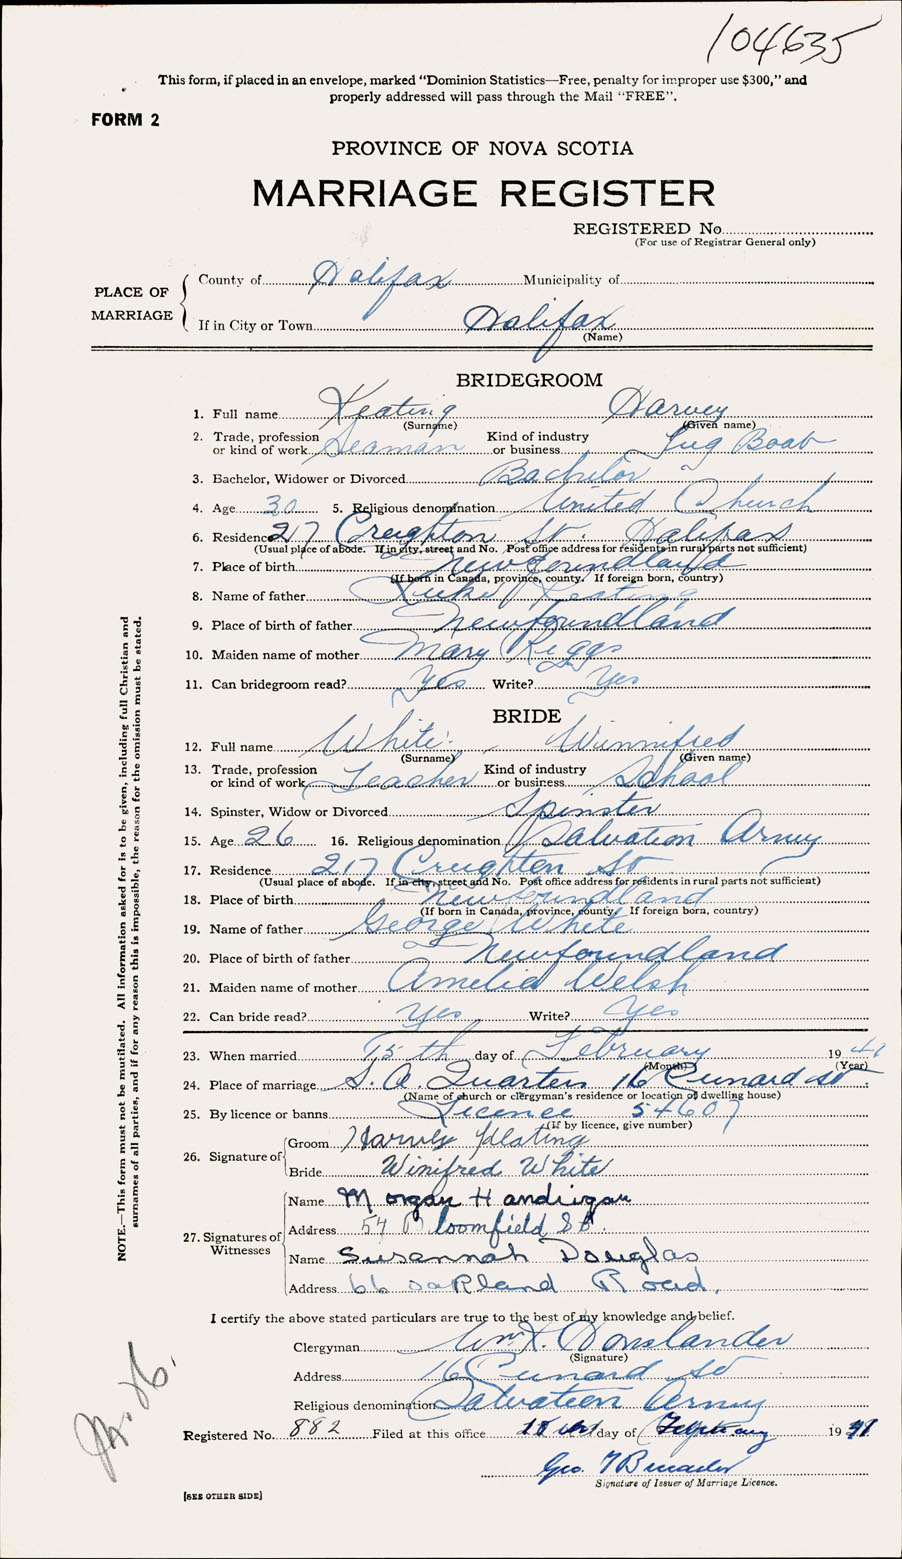 104635
This form, if placed in an envelope, marked "Dominion Statistics—Free, penalty for improper use $300," and
properly addressed will pass through the Mail "FREE".
FORM 2
PROVINCE OF NOVA SCOTIA
MARRIAGE REGISTER
REGISTERED No.
(For use of Registrar General only)
PLACE OF MARRIAGE
County of Halifax Municipality of
If in City or Town Halifax
(Name)
BRIDEGROOM
1. Full name Keating Harvey
(Surname) (Given name)
2. Trade, profession or kind of work Seaman Kind of industry or business Tug Boat
3. Bachelor, Widower or Divorced Bachelor
4. Age 30 5. Religious denomination United Church
6. Residence 217 Creighton St. Halifax
(Usual place of abode. If in city, street and No. Post office address for residents in rural parts not sufficient)
7. Place of birth Newfoundland
(If born in Canada, province, county. If foreign born, country)
8. Name of father Luke Keating
9. Place of birth of father Newfoundland
10. Maiden name of mother Mary Riggs
11. Can bridegroom read? Yes Write? Yes
BRIDE
12. Full name White Winnifred
(Surname) (Given name)
13. Trade, profession or kind of work Teacher Kind of industry or business School
14. Spinster, Widow or Divorced Spinster
15. Age 26 16. Religious denomination Salvation Army
17. Residence 217 Creighton St
(Usual place of abode. If in city, street and No. Post office address for residents in rural parts not sufficient)
18. Place of birth Newfoundland
(If born in Canada, province, county. If foreign born, country)
19. Name of father George White
20. Place of birth of father Newfoundland
21. Maiden name of mother Amelia Welsh
22. Can bride read? Yes Write? Yes
23. When married 15th day of February 1941
(Month) (Year)
24. Place of marriage S. A. Quarters 16 Cunard St
(Name of church or clergyman's residence or location of dwelling house)
25. By licence or banns Licence 54607
(If by licence, give number)
26. Signature of
Groom Harvey Keating
Bride Winifred White
27. Signatures of Witnesses
Name Morgan Handrigan
Address 54 Bloomfield St.
Name Susannah Douglas
Address 66 Oakland Road.
I certify the above stated particulars are true to the best of my knowledge and belief.
Clergyman Wm
(Signature)
Address 16 Cunard St
Religious denomination Salvation Army
Registered No. 882 Filed at this office day of February 1941
Geo.
Signature of Issuer of Marriage Licence.
[SEE OTHER SIDE]
NOTE.—This form must not be mutilated. All information asked for is to be given, including full Christian and
surnames of all parties, and if for any reason this is impossible, the reason for the omission must be stated.